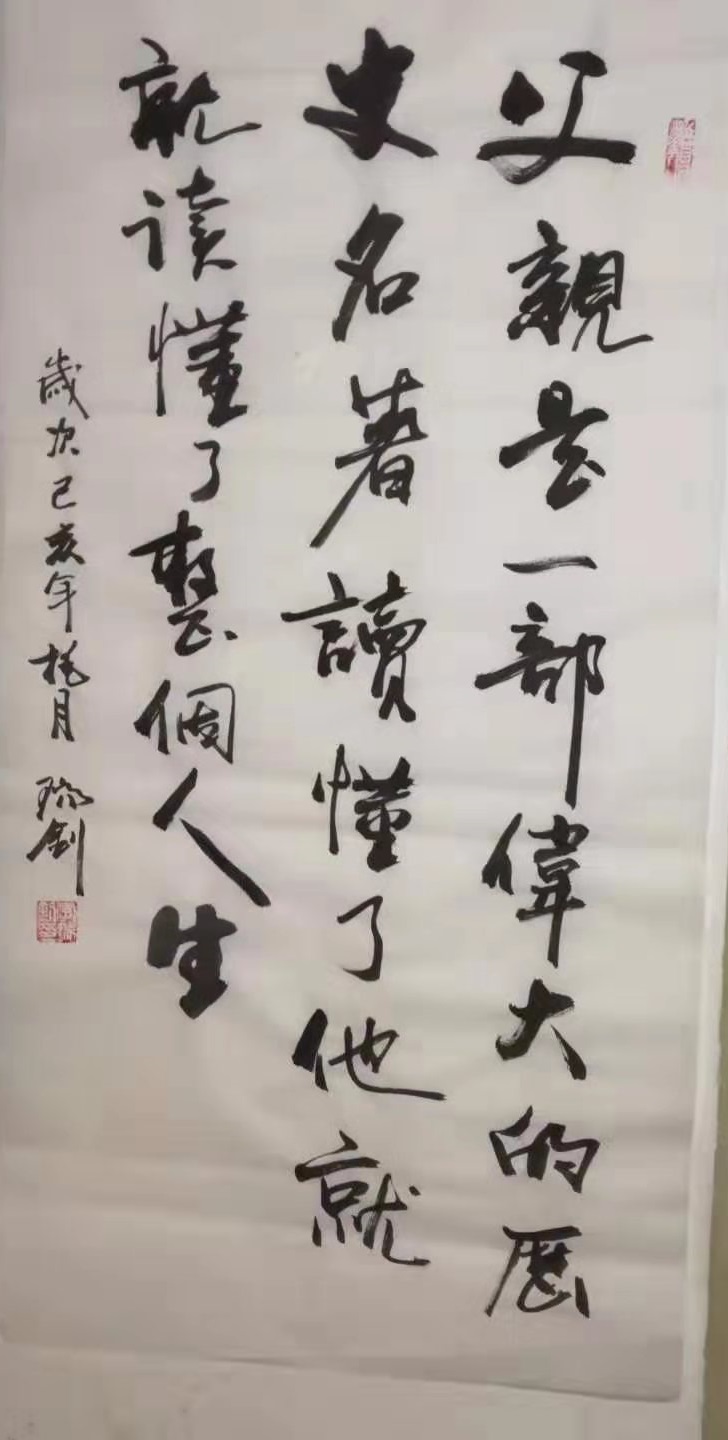 父親是一部偉大的歷
史名著讀懂了他就
就读懂了整個人生
歲次己亥年桃月